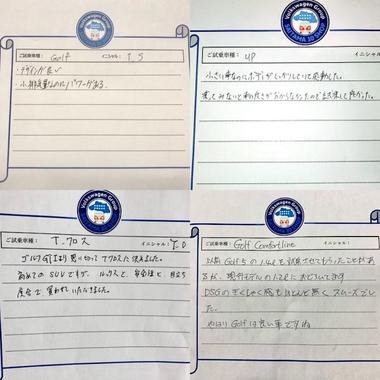 Volkswagen Group
ご試乗車種： Golf イニシャル： T.S
・デザインが良い
・小排気量なのにパワーがある。
Volkswagen Group
ご試乗車種： UP イニシャル
小さい車なのにボディがしっかりしていて感動した。
乗ってみないと車の良さがわからなかったので試乗して良かった。
Volkswagen Group
ご試乗車種： T.クロス イニシャル： T.O
ゴルフGTIより思い切ってTクロスに決めました。
初めてのSUVですが、ルックスと、安全性と、目立ち
度合で、買わせていただきました。
Volkswagen Group
ご試乗車種： Golf Comfortline イニシャル：
以前Golf5の1.4Lを試乗させてもらったことがあ
るが、現行モデルの1.2Lにおどろいてます
DSGのぎくしゃく感もほとんど無くスムーズでし
た。
やはりGolfは良い車ですね